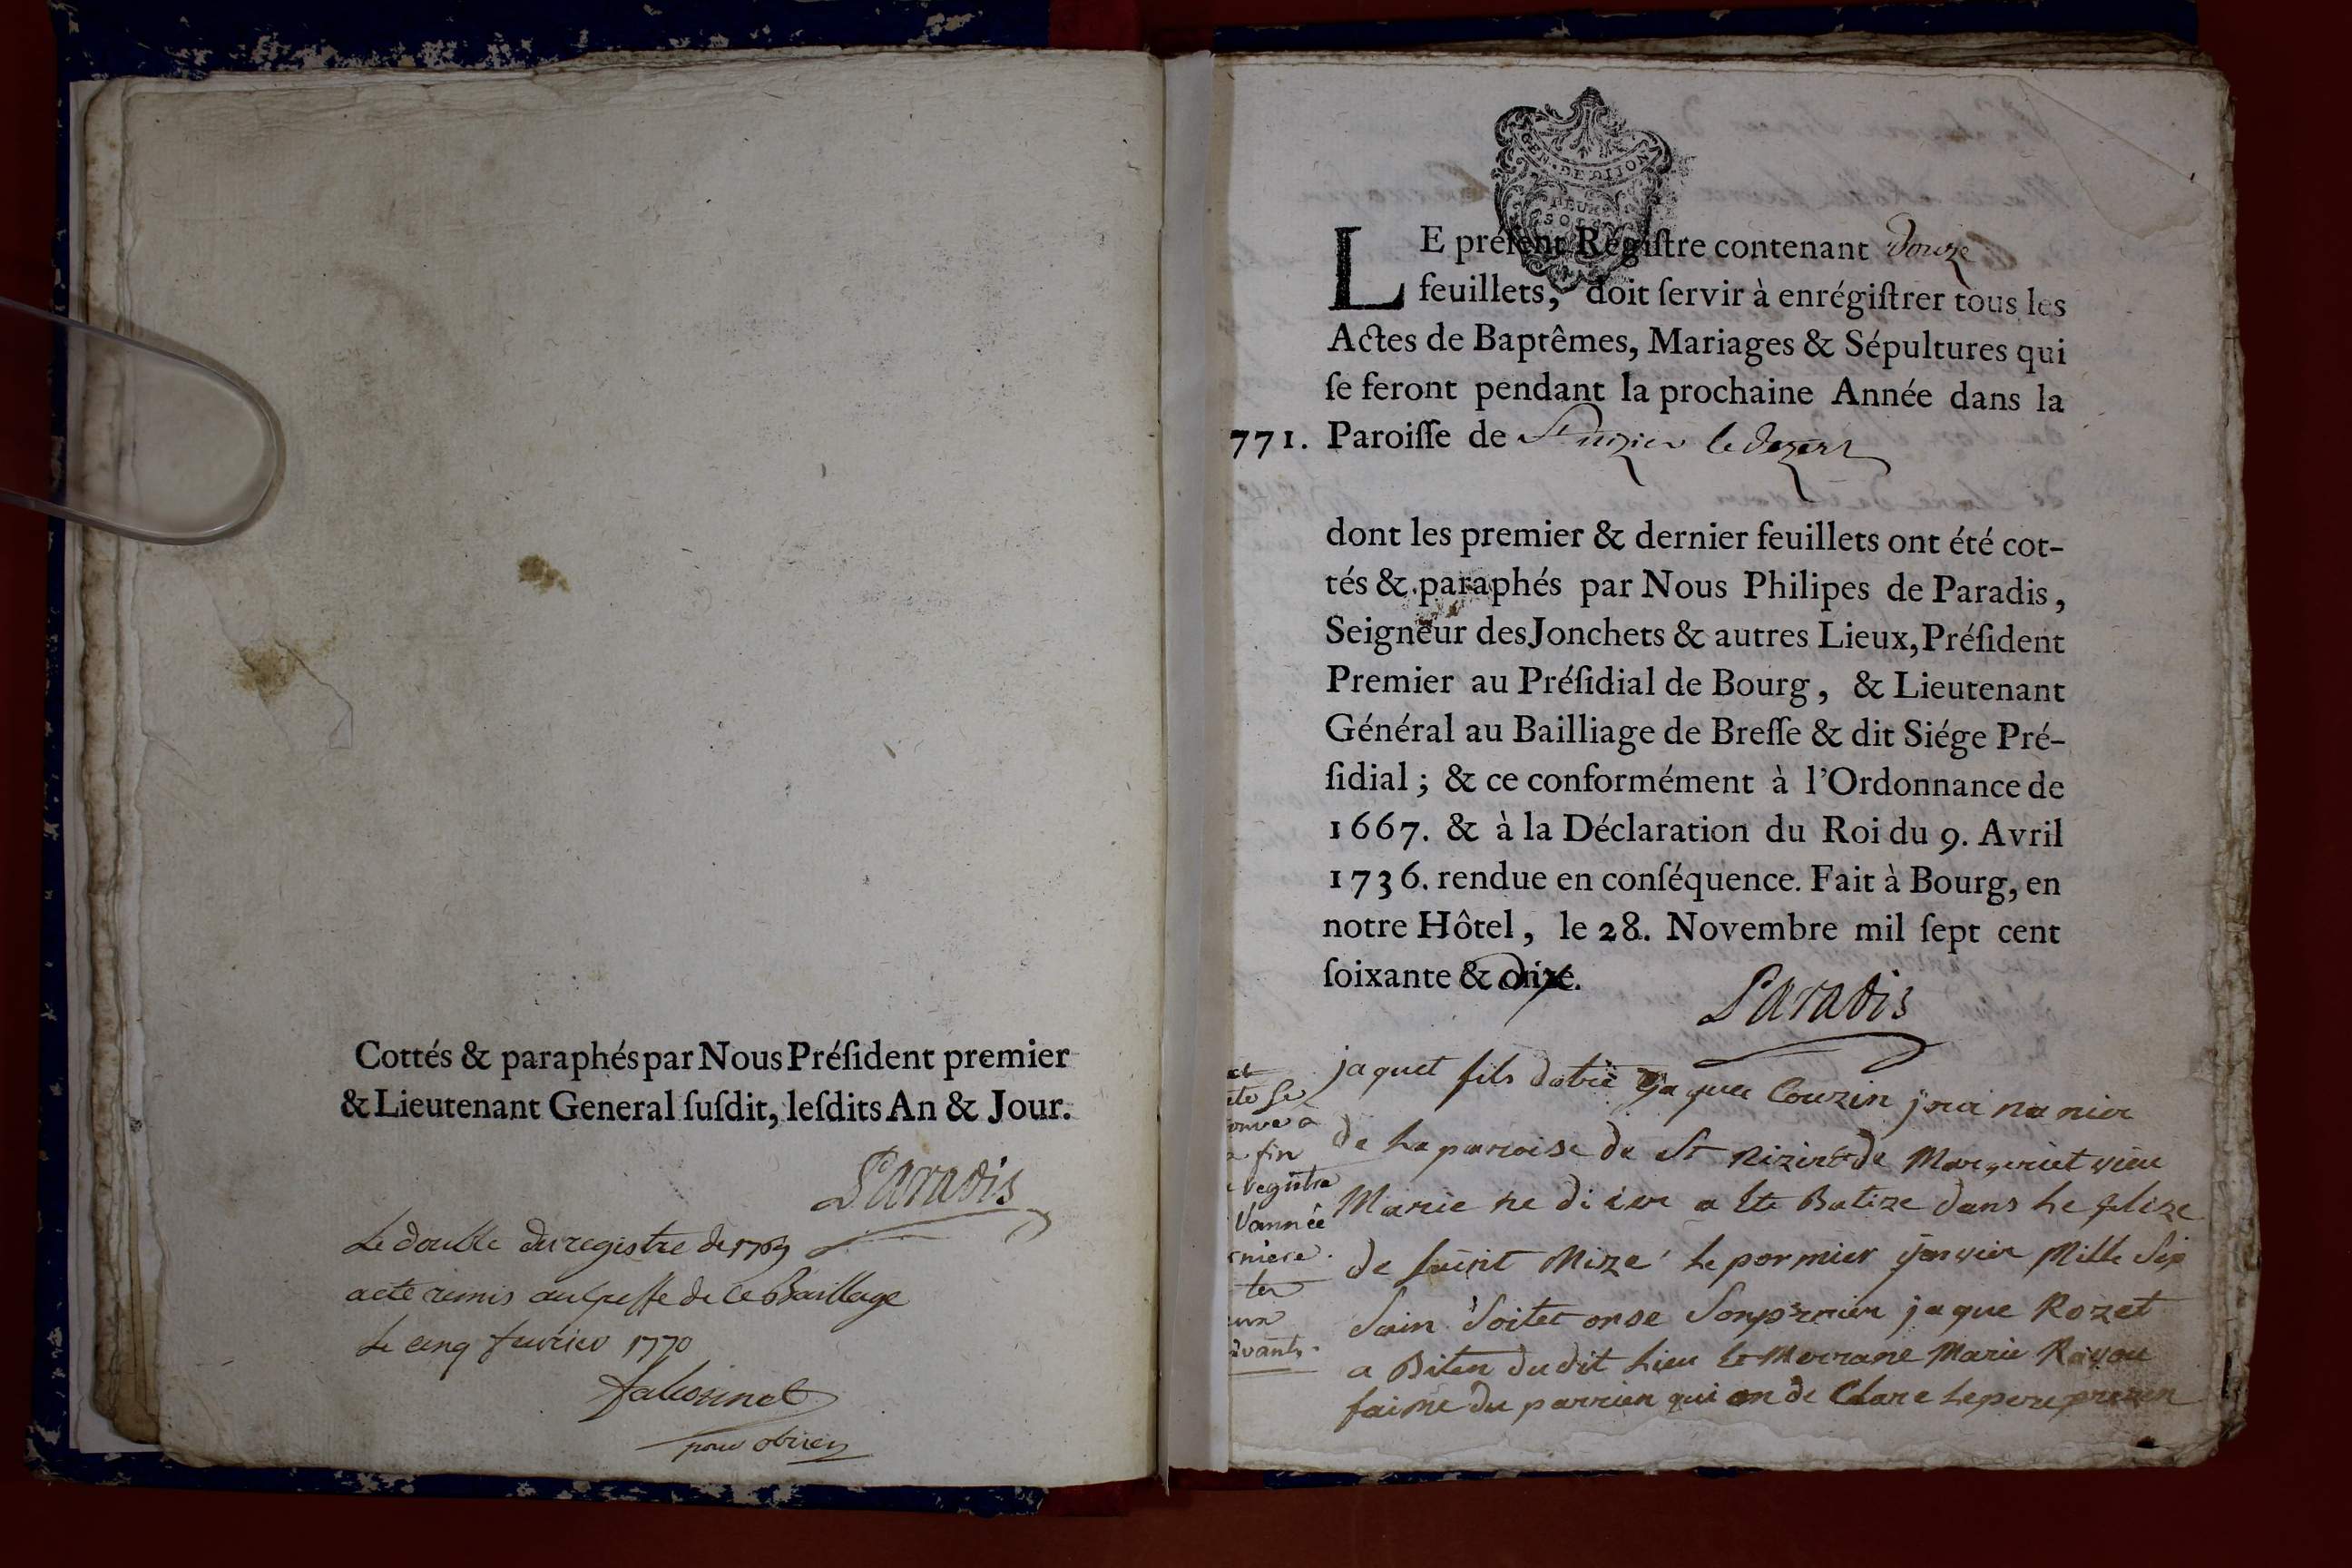 Cottés & paraphés par Nous Préſident premier
& Lieutenant General ſuſdit, leſdits An & Jour.
Paradis
Le double du registre de 1769
acté remis au Greffe de ce Baillage
Le cinq fevrier 1770
pour
GEN · DE DIJON
LE préſent Regiſtre contenant Douze
feuillets, doit ſervir à enrégiſtrer tous les
Actes de Baptêmes, Mariages & Sépultures qui
ſe feront pendant la prochaine Année dans la
771. Paroiſſe de St nizier le dezert
dont les premier & dernier feuillets ont été cot-
tés & paraphés par Nous Philipes de Paradis,
Seigneur des Jonchets & autres Lieux, Préſident
Premier au Préſidial de Bourg, & Lieutenant
Général au Bailliage de Breſſe & dit Siége Pré-
ſidial ; & ce conformément à l'Ordonnance de
1667. & à la Déclaration du Roi du 9. Avril
1736. rendue en conſéquence. Fait à Bourg, en
notre Hôtel, le 28. Novembre mil ſept cent
ſoixante & dix.
Paradis
fin
registre
l'année
rniere.
ivants.
jaquet fils Couzin
de La paroise de St
Marie a Ete Batize dans
de saint Mizé Le pormier janvier Mille Sep
Sain Soitet onse jaque Rozet
a Biten dudit Lieu Et Marie
faime du parrien qui on de Clare Le pere prezen